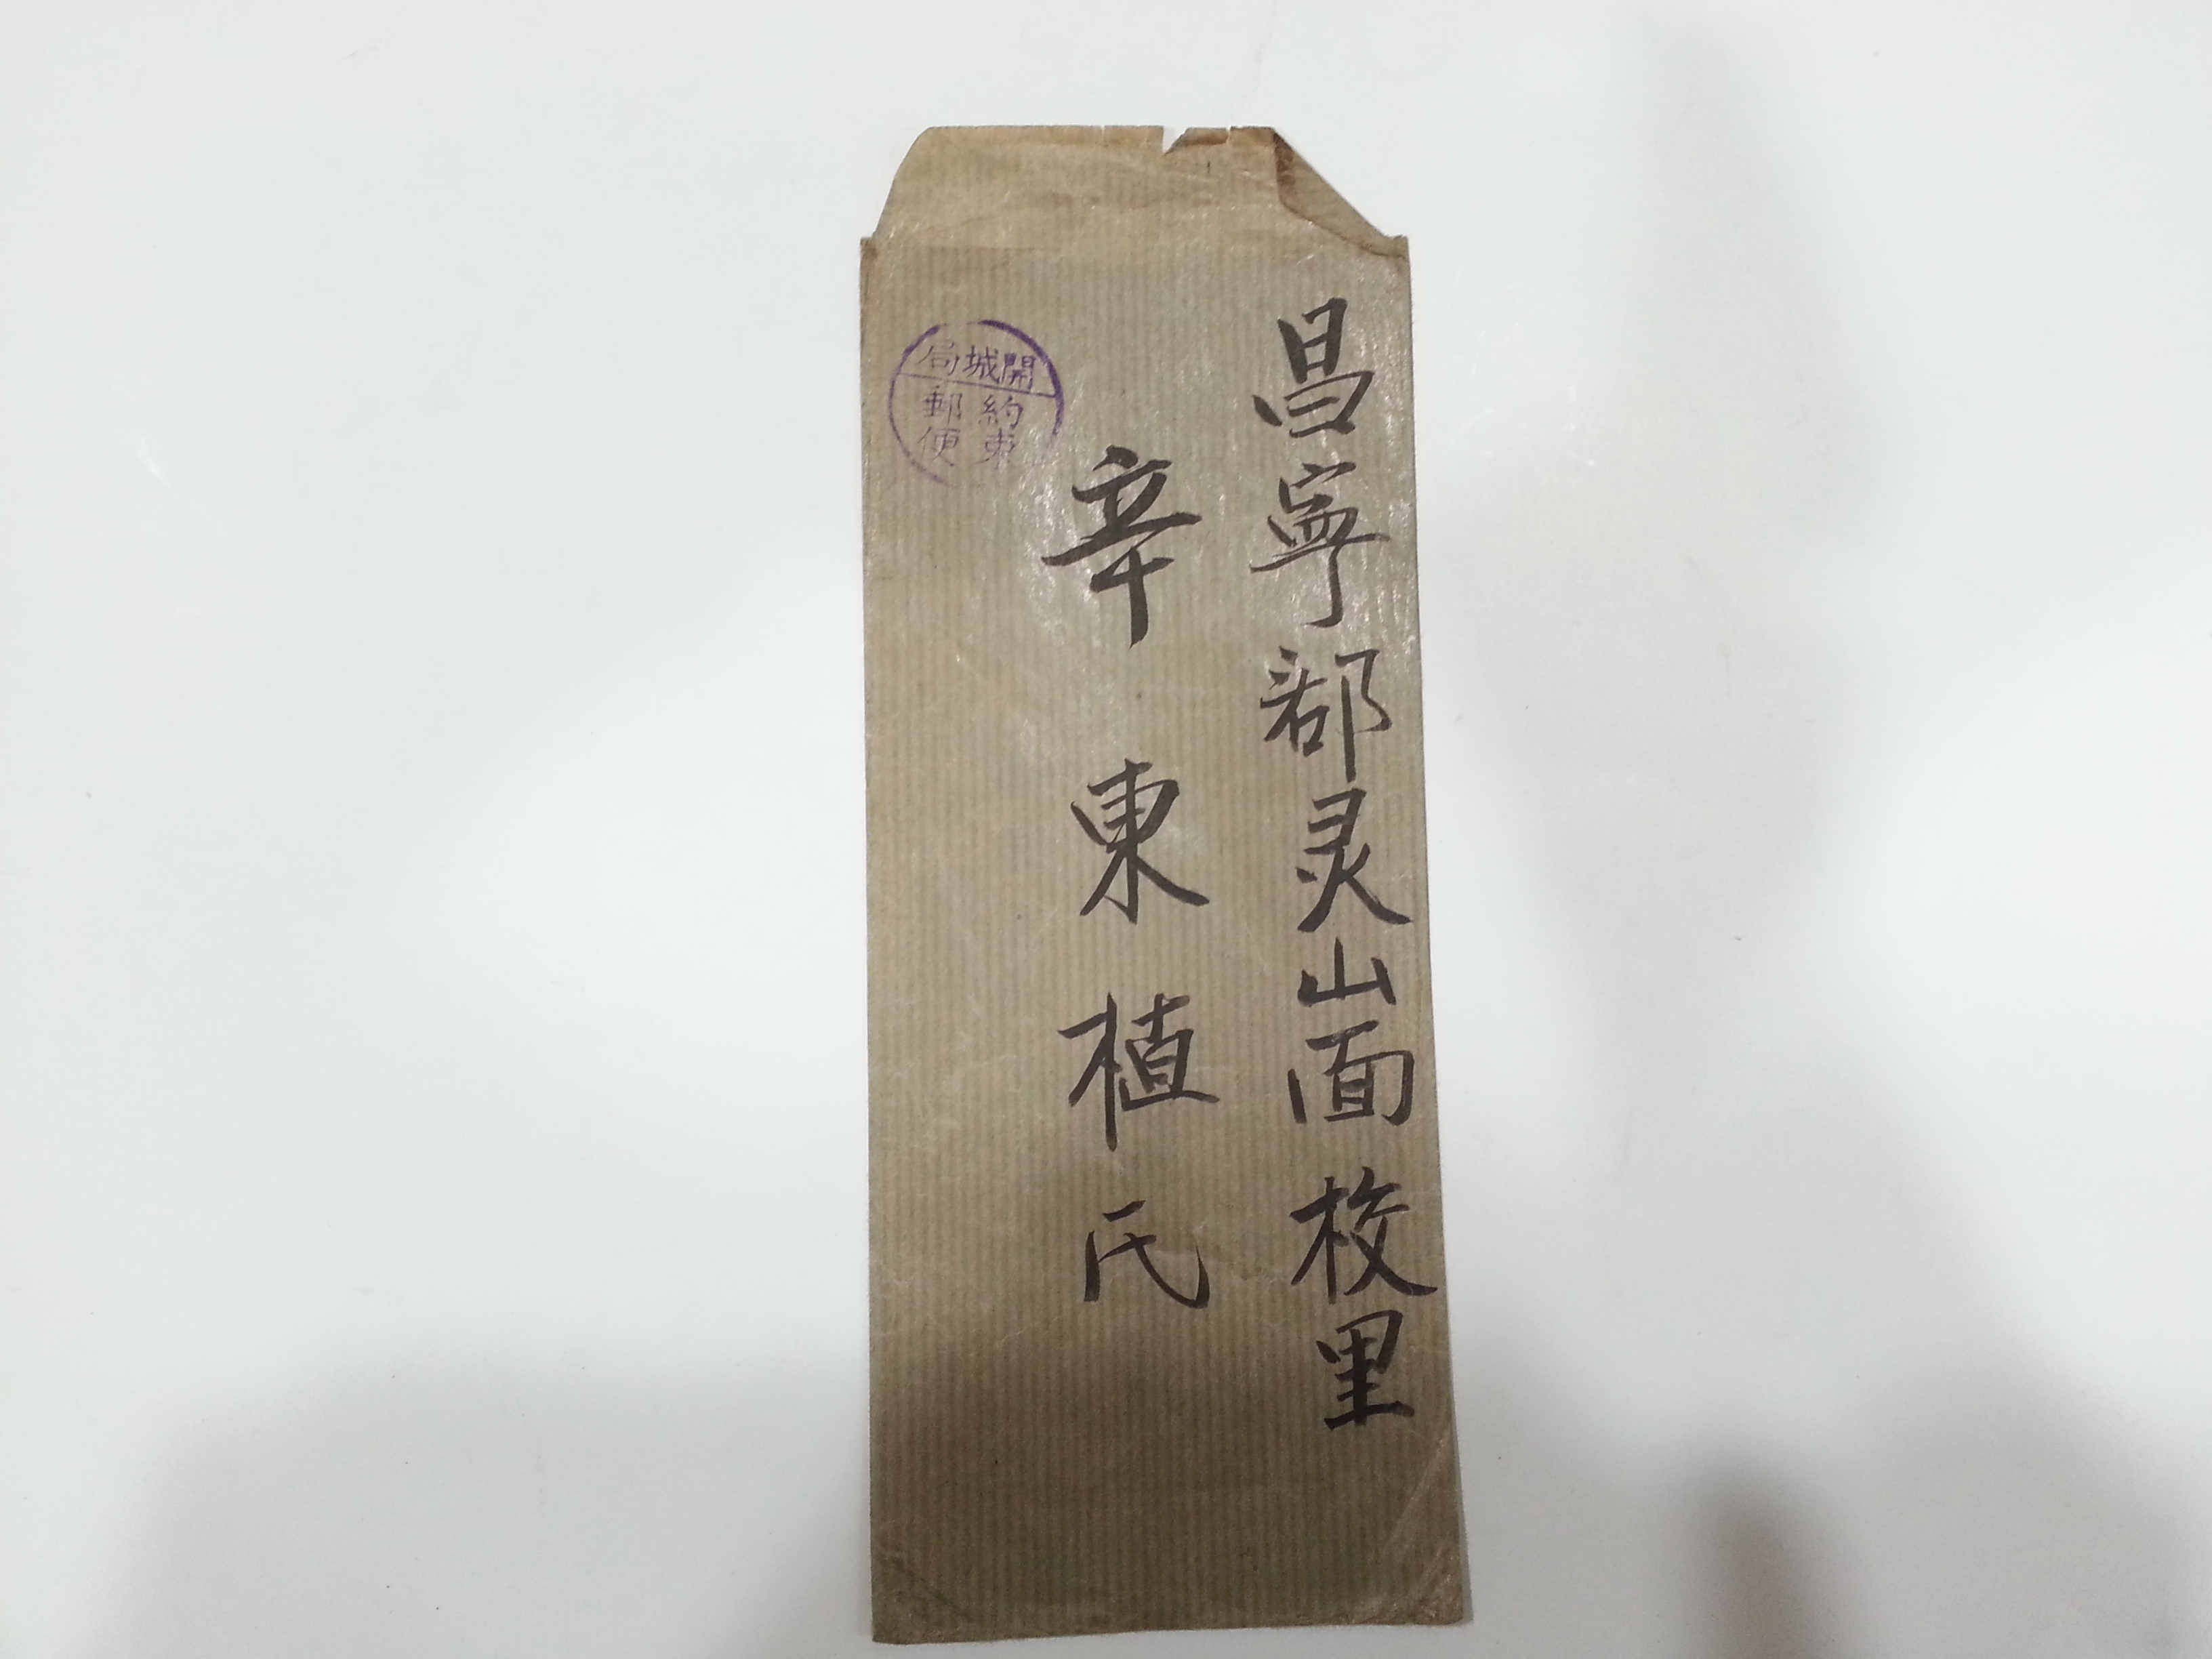 昌寧郡灵山面校里
辛東植氏
開城局
約束
郵便